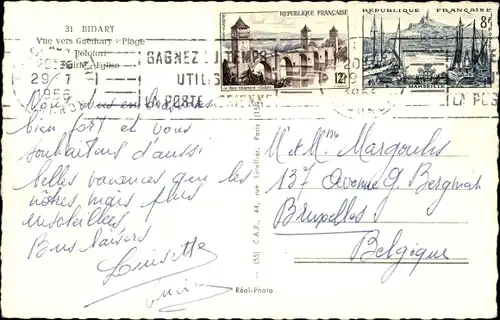 31 BIDART
Vue vers Guéthary - Plage
Pelotari
Eglise
RÉPUBLIQUE FRANÇAISE
12F
Le Pont Valentré - Cahors
RÉPUBLIQUE FRANÇAISE
8F
MARSEILLE
20H
29-7
1956
GAGNEZ DU TEMPS
UTILISEZ
LA POSTE AÉRIENNE
LA POS
Nous vous embrassons
bien fort et vous
souhaitons d'aussi
belles vacances que les
nôtres, mais plus
ensoleillées.
Bons baisers
Luisette
M. et Mme Margoulis
137 Avenue G. Bergmann
Bruxelles
Belgique
(55) C.A.P., 44, rue Letellier, Paris (15e)
Réal-Photo